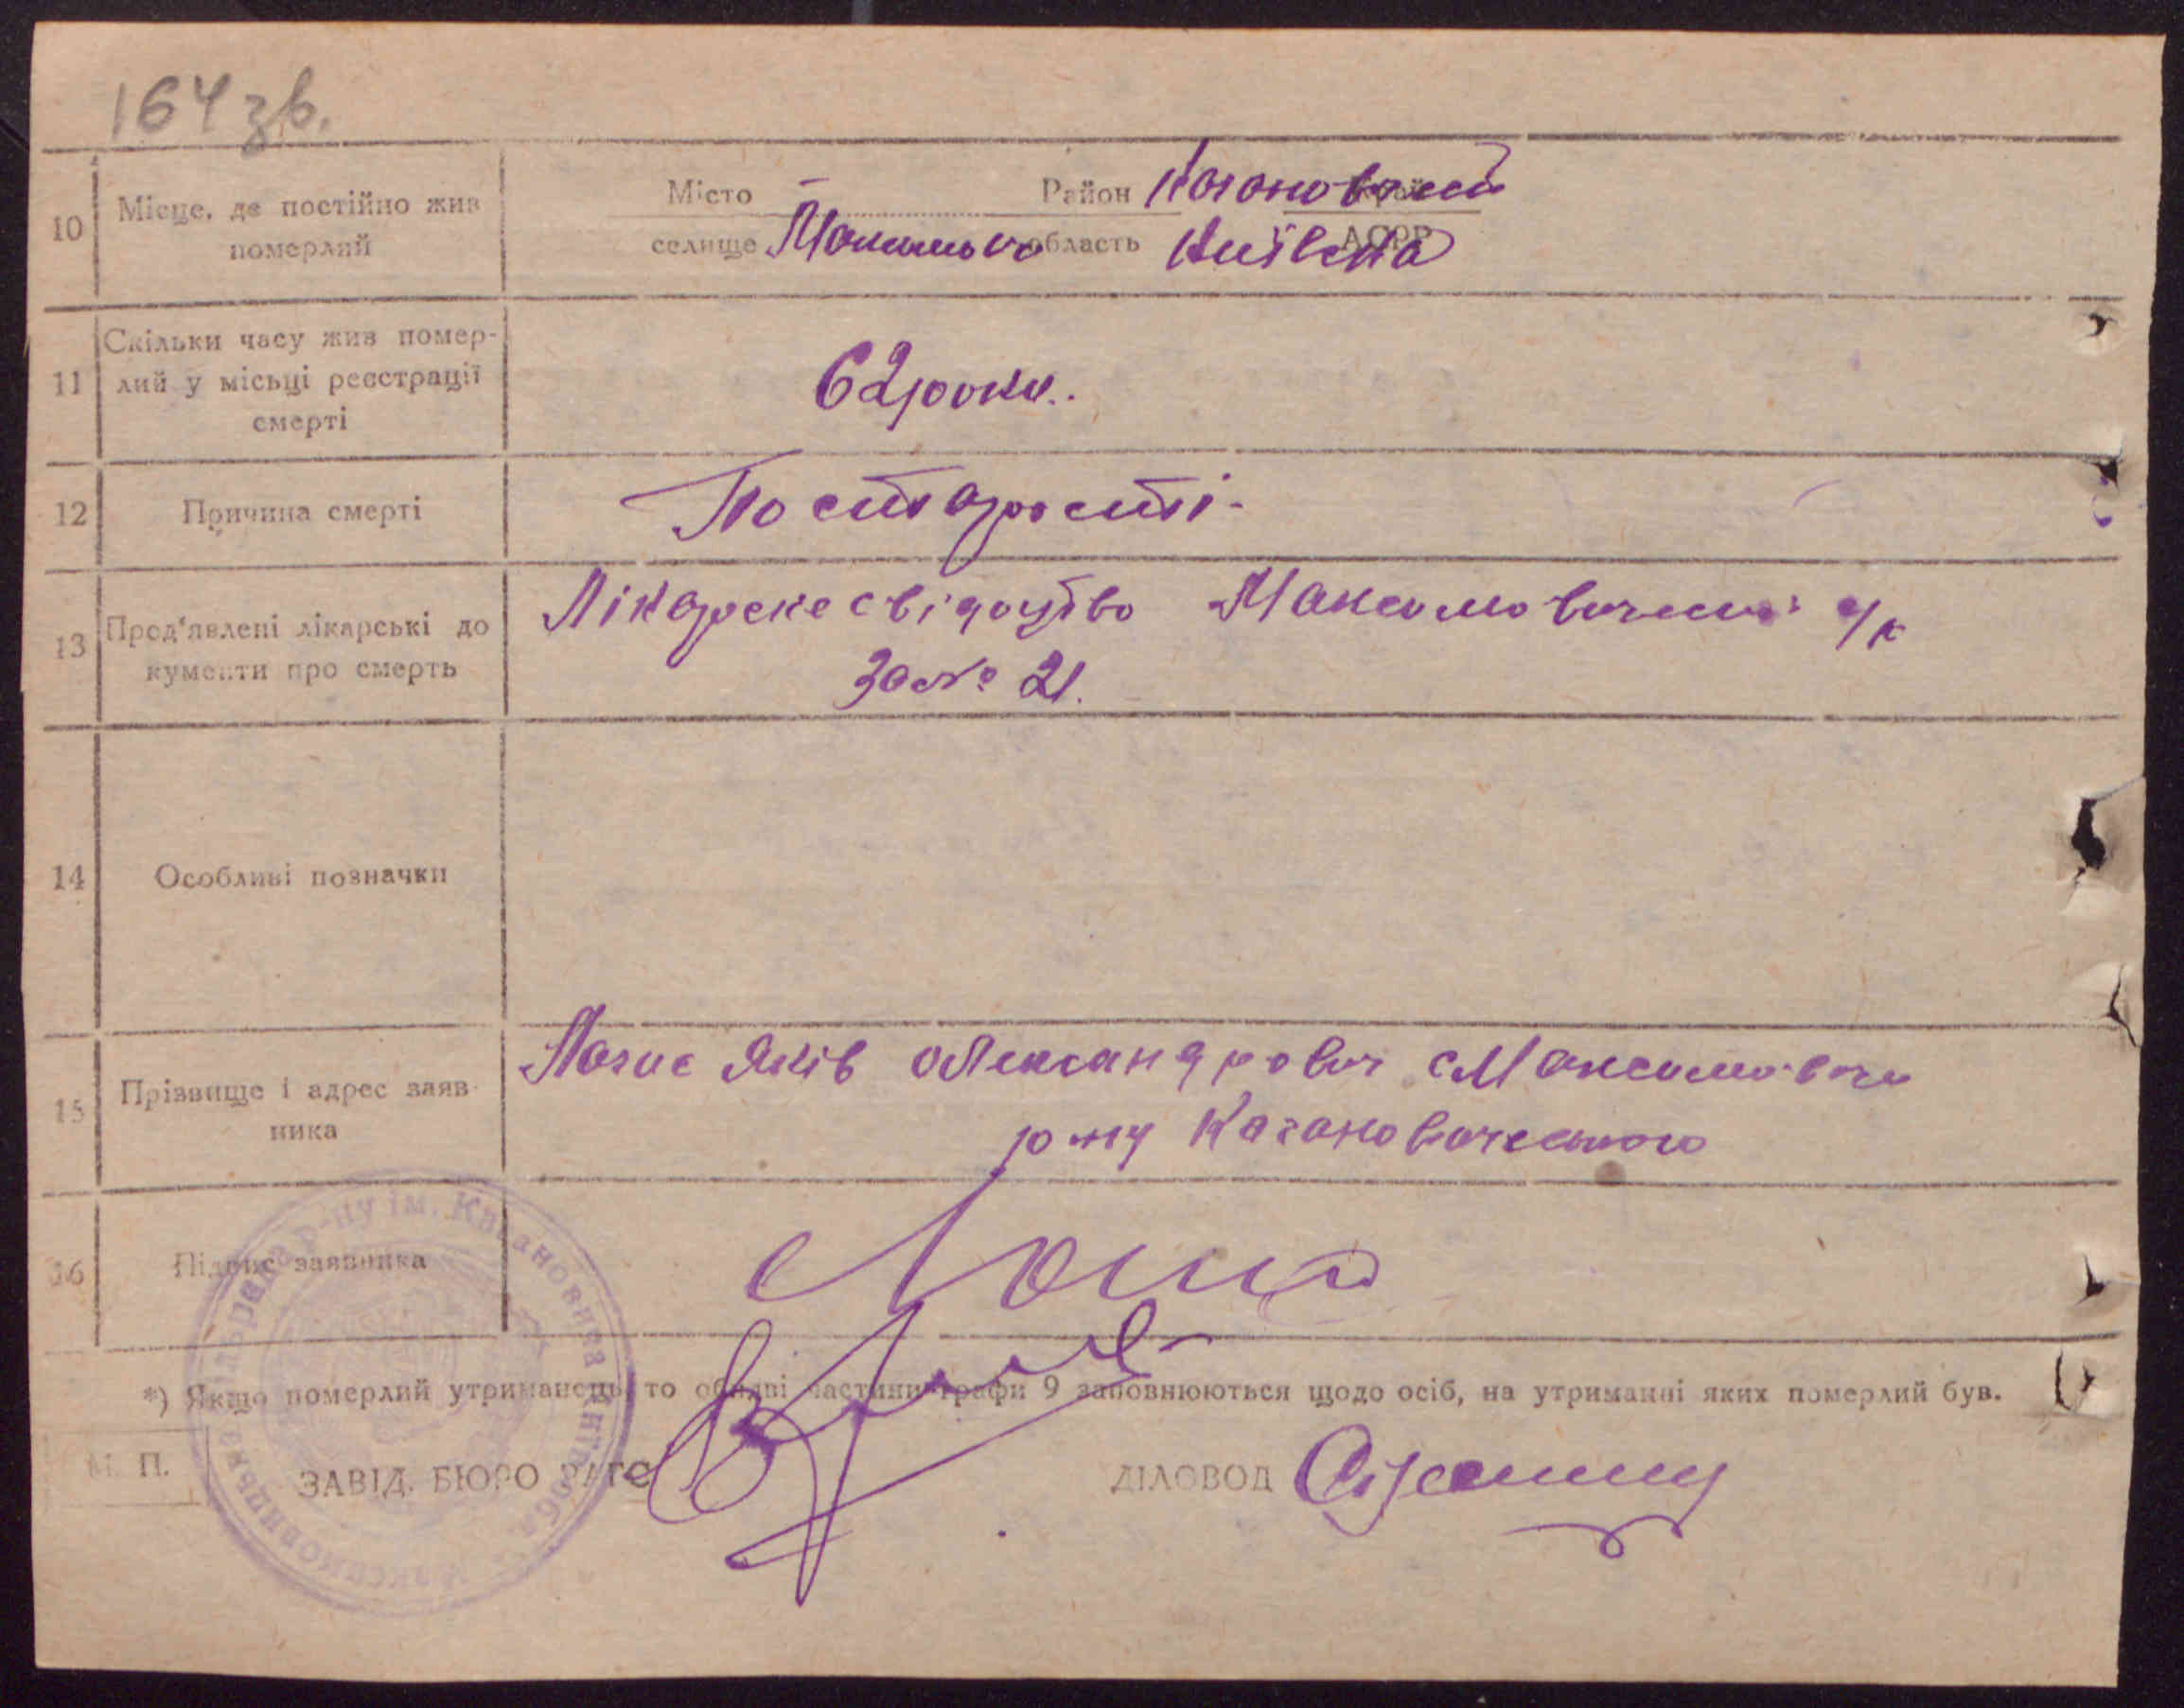 164 зв.
10 Місце, де постійно жив померлий
Місто — Район Кагановичський край
селище область Київська АСРР
11 Скільки часу жив помер-
лий у місьці реєстрації
смерті
62 роки.
12 Причина смерті
По старості
13 Прод'явлені лікарські до
кументи про смерть
Лікарске свідоцтво Максимовичської с/р
За № 21.
14 Особливі позначки
15 Прізвище і адрес заяв-
ника
Яків Олександрович с Максимовичи
р-ну Кагановичського
16 Підпис заявника
*) Якщо померлий утриманець, то обидві частини графи 9 заповнюються щодо осіб, на утриманні яких померлий був.
М. П.
ЗАВІД. БЮРО ЗАГС
ДІЛОВОД
р-ну ім. Кагановича